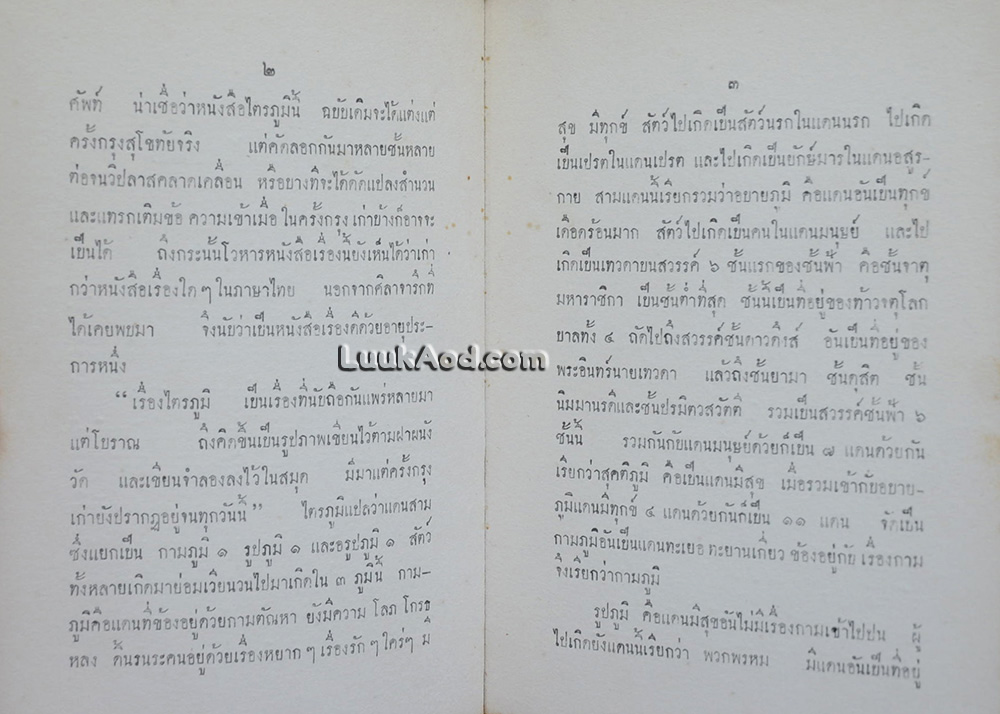 ๒
ศัพท์ น่าเชื่อว่าหนังสือไตรภูมินี้ ฉบับเดิมจะได้แต่งแต่
ครั้งกรุงสุโขทัยจริง แต่คัดลอกกันมาหลายชั้นหลาย
ต่อจนวิปลาสคลาดเคลื่อน หรือบางทีจะได้ดัดแปลงสำนวน
และแทรกเติมข้อ ความเข้าเมื่อ ในครั้งกรุง เก่าบ้างก็อาจจะ
เป็นได้ ถึงกระนั้นโวหารหนังสือเรื่องนี้ยังเห็นได้ว่าเก่า
กว่าหนังสือเรื่องใด ๆ ในภาษาไทย นอกจากศิลาจารึกที่
ได้เคยพบมา จึงนับว่าเป็นหนังสือเรื่องดีด้วยอายุประ-
การหนึ่ง
“เรื่องไตรภูมิ เป็นเรื่องที่นับถือกันแพร่หลายมา
แต่โบราณ ถึงคิดขึ้นเป็นรูปภาพเขียนไว้ตามฝาผนัง
วัด และเขียนจำลองลงไว้ในสมุด มีมาแต่ครั้งกรุง
เก่ายังปรากฏอยู่จนทุกวันนี้” ไตรภูมิแปลว่าแดนสาม
ซึ่งแยกเป็น กามภูมิ ๑ รูปภูมิ ๑ และอรูปภูมิ ๑ สัตว์
ทั้งหลายเกิดมาย่อมเวียนวนไปมาเกิดใน ๓ ภูมินี้ กาม-
ภูมิคือแดนที่ข้องอยู่ด้วยกามตัณหา ยังมีความ โลภ โกรธ
หลง ดั้นรนระคนอยู่ด้วยเรื่องหยาก ๆ เรื่องรัก ๆ ใคร่ๆ มี
๓
สุข มีทุกข์ สัตว์ไปเกิดเป็นสัตว์นรกในแดนนรก ไปเกิด
เป็นเปรตในแดนเปรต และไปเกิดเป็นยักษ์มารในแดนอสูร-
กาย สามแดนนี้เรียกรวมว่าอบายภูมิ คือแดนอันเป็นทุกข์
เดือดร้อนมาก สัตว์ไปเกิดเป็นคนในแดนมนุษย์ และไป
เกิดเป็นเทวดาบนสวรรค์ ๖ ชั้นแรกของชั้นฟ้า คือชั้นจาตุ
มหาราชิกา เป็นชั้นต่ำที่สุด ชั้นนี้เป็นที่อยู่ของท้าวจตุโลก
บาลทั้ง ๔ ถัดไปถึงสวรรค์ชั้นดาวดึงส์ อันเป็นที่อยู่ของ
พระอินทร์นายเทวดา แล้วถึงชั้นยามา ชั้นดุสิต ชั้น
นิมมานรดีและชั้นปรมิตวสวัตตี รวมเป็นสวรรค์ชั้นฟ้า ๖
ชั้นนี้ รวมกันกับแดนมนุษย์ด้วยก็เป็น ๗ แดนด้วยกัน
เรียกว่าสุคติภูมิ คือเป็นแดนมีสุข เมื่อรวมเข้ากับอบาย-
ภูมิแดนมีทุกข์ ๔ แดนด้วยกันก็เป็น ๑๑ แดน จัดเป็น
กามภูมิอันเป็นแดนทะเยอ ทะยานเกี่ยว ข้องอยู่กับ เรื่องกาม
จึงเรียกว่ากามภูมิ
รูปภูมิ คือแดนมีสุขอันไม่มีเรื่องกามเข้าไปปน ผู้
ไปเกิดยังแดนนี้เรียกว่า พวกพรหม มีแดนอันเป็นที่อยู่
LuukAod.com